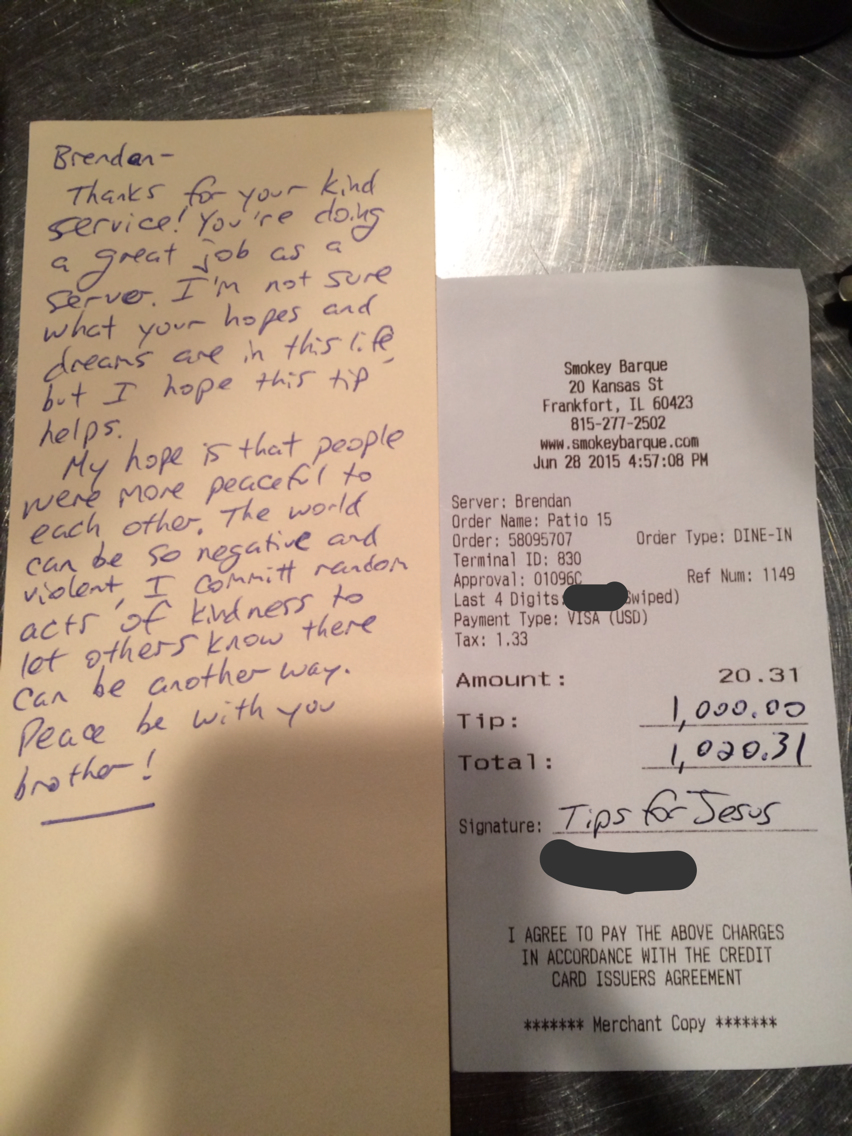 Brendan-
Thanks for your kind
service! You're doing
a great job as a
server. I'm not sure
what your hopes and
dreams are in this life,
but I hope this tip
helps.
My hope is that people
were more peaceful to
each other. The world
can be so negative and
violent, I committ random
acts of kindness to
let others know there
can be another way.
Peace be with you
brother!
Smokey Barque
20 Kansas St
Frankfort, IL 60423
815-277-2502
www.smokeybarque.com
Jun 28 2015 4:57:08 PM
Server: Brendan
Order Name: Patio 15
Order: 58095707 Order Type: DINE-IN
Terminal ID: 830
Approval: 01096C Ref Num: 1149
Last 4 Digits: Swiped)
Payment Type: VISA (USD)
Tax: 1.33
Amount: 20.31
Tip: 1,000.00
Total: 1,020.31
Signature: Tips for Jesus
I AGREE TO PAY THE ABOVE CHARGES
IN ACCORDANCE WITH THE CREDIT
CARD ISSUERS AGREEMENT
******* Merchant Copy *******